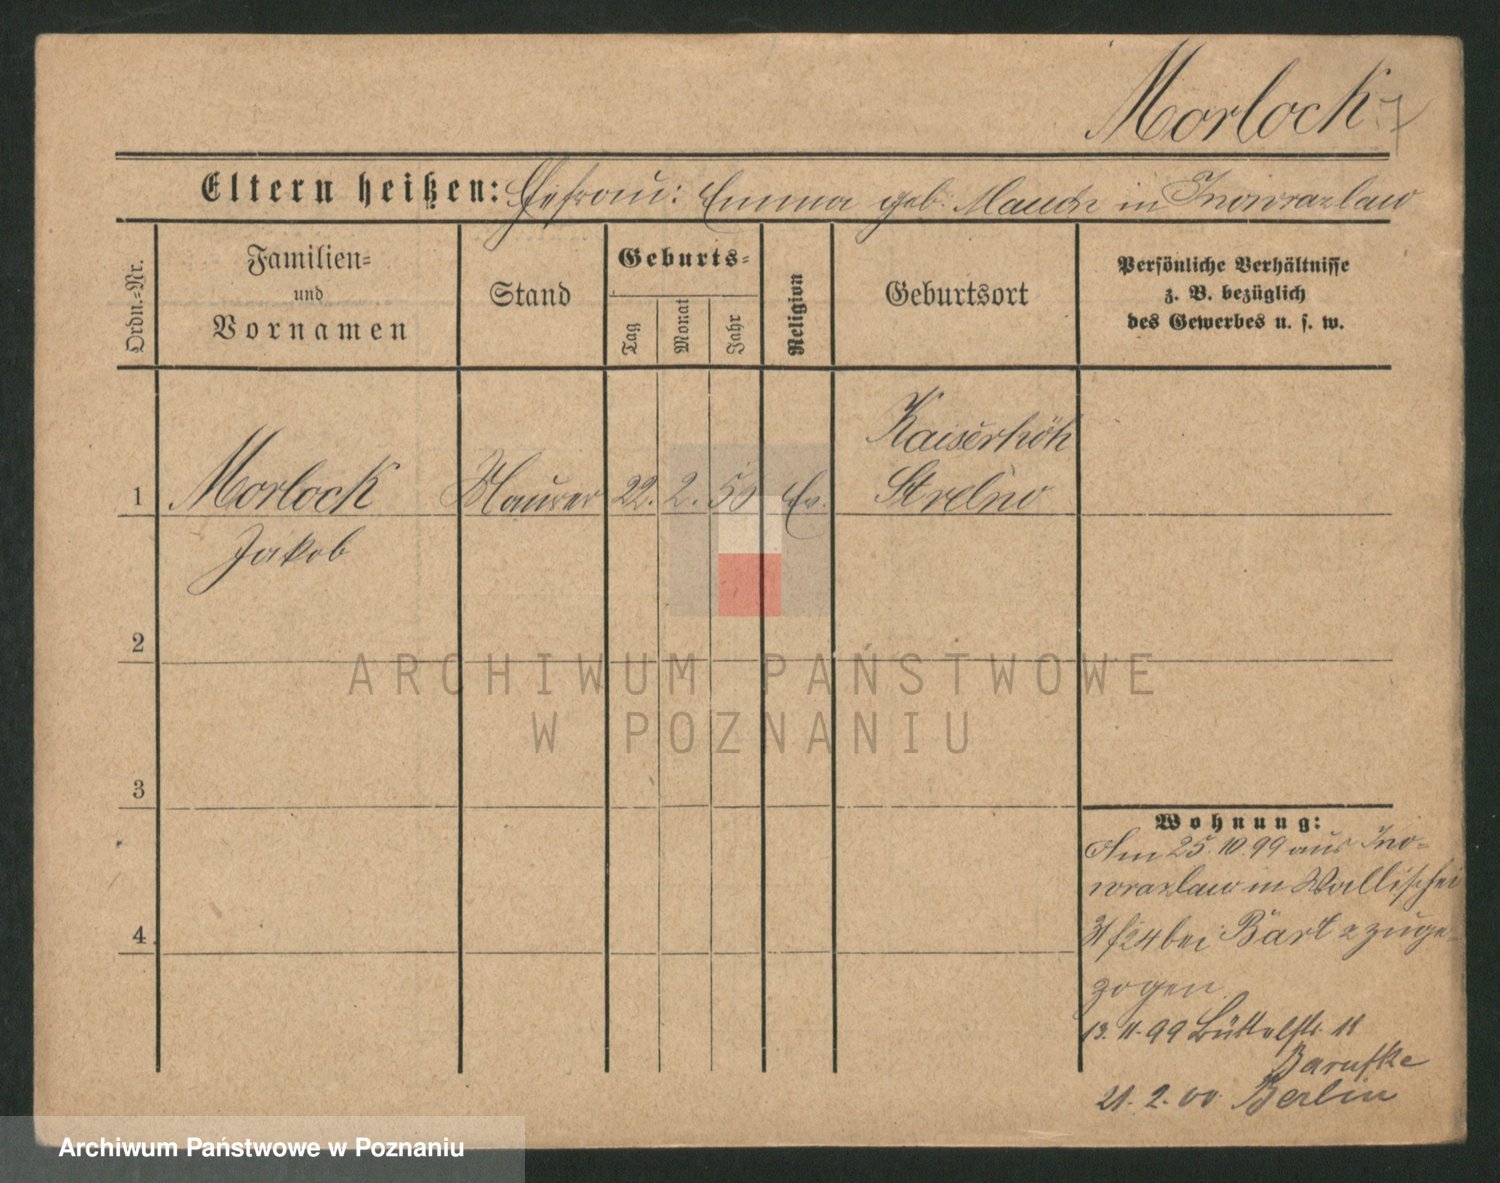 Morlock
Eltern heißen: Ehefrau: Emma geb. Mauch in Inowrazlaw
Ordn.-Nr.
Familien-
und
Vornamen
Stand
Geburts-
Tag
Monat
Jahr
Religion
Geburtsort
Persönliche Verhältnisse
z. B. bezüglich
des Gewerbes u. s. w.
1 Morlock Maurer 22. 2. 50 Ev. Kaiserhöh
Strelno
Jakob
2
3
4
Wohnung:
Am 25.10.99 aus Ino-
wrazlaw in Wallischei
bei Bartz zuge-
zogen
13.11.99 Büttelstr. 18
Barufke
21.2.00 Berlin
ARCHIWUM PAŃSTWOWE
W POZNANIU
Archiwum Państwowe w Poznaniu